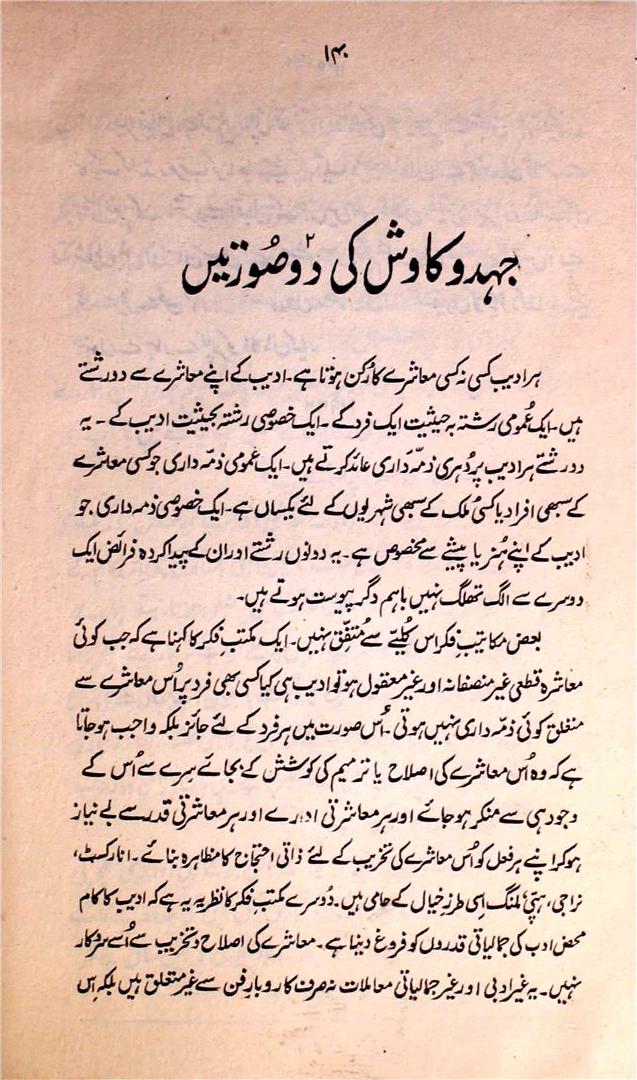 ۱۴۰
جہد و کاوش کی دو صورتیں
ہر ادیب کسی نہ کسی معاشرے کا رُکن ہوتا ہے۔ ادیب کے اپنے معاشرے سے دو رشتے
ہیں۔ ایک عُمومی رشتہ بہ حیثیت ایک فرد کے۔ ایک خصوصی رشتہ بحیثیت ادیب کے ۔ یہ
دو رشتے ہر ادیب پر دُہری ذمّہ داری عائد کرتے ہیں۔ ایک عمومی ذمّہ داری جو کسی معاشرے
کے سبھی افراد یا کسی ملک کے سبھی شہریوں کے لئے یکساں ہے۔ ایک خصوصی ذمہ داری جو
ادیب کے اپنے ہُنر یا پیشے سے مخصوص ہے۔ یہ دونوں رشتے اور ان کے پیدا کردہ فرائض ایک
دوسرے سے الگ تھلگ نہیں باہم دگر پیوست ہوتے ہیں۔
بعض مکاتیبِ فکر اس کلیّے سے مُتفِق نہیں۔ ایک مکتبِ فکر کا کہنا ہے کہ جب کوئی
معاشرہ قطعی غیر منصفانہ اور غیر معقول ہو تو ادیب ہی کیا کسی بھی فرد پر اُس معاشرے سے
متعلق کوئی ذمّہ داری نہیں ہوتی ۔ اُس صورت میں ہر فرد کے لئے جائز بلکہ واجب ہو جاتا
ہے کہ وہ اُس معاشرے کی اصلاح یا ترمیم کی کوشش کے بجائے سِرے سے اُس کے
وجود ہی سے منکر ہو جائے اور ہر معاشرتی ادارے اور ہر معاشرتی قدر سے بے نیاز
ہو کر اپنے ہر فعل کو اُس معاشرے کی تخریب کے لئے ذاتی احتجاج کا مظاہرہ بنائے ۔ انارکسٹ،
نراجی، ہپّی، ملنگ اِسی طرزِ خیال کے حامی ہیں۔ دُوسرے مکتبِ فکر کا نظریہ یہ ہے کہ ادیب کا کام
محض ادب کی جمالیاتی قدروں کو فروغ دینا ہے۔ معاشرے کی اصلاح و تخریب سے اُسے سروکار
نہیں۔ یہ غیر ادبی اور غیر جمالیاتی معاملات نہ صرف کاروبارِ فن سے غیر متعلق ہیں بلکہ اِس